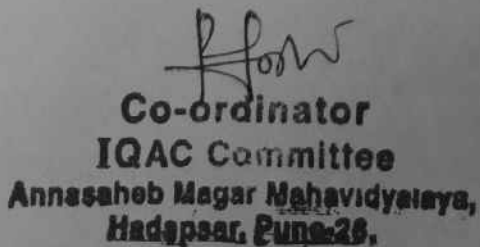 Co-ordinator
IQAC Committee
Annasaheb Magar Mahavidyalaya,
Hadapsar, Pune-28.